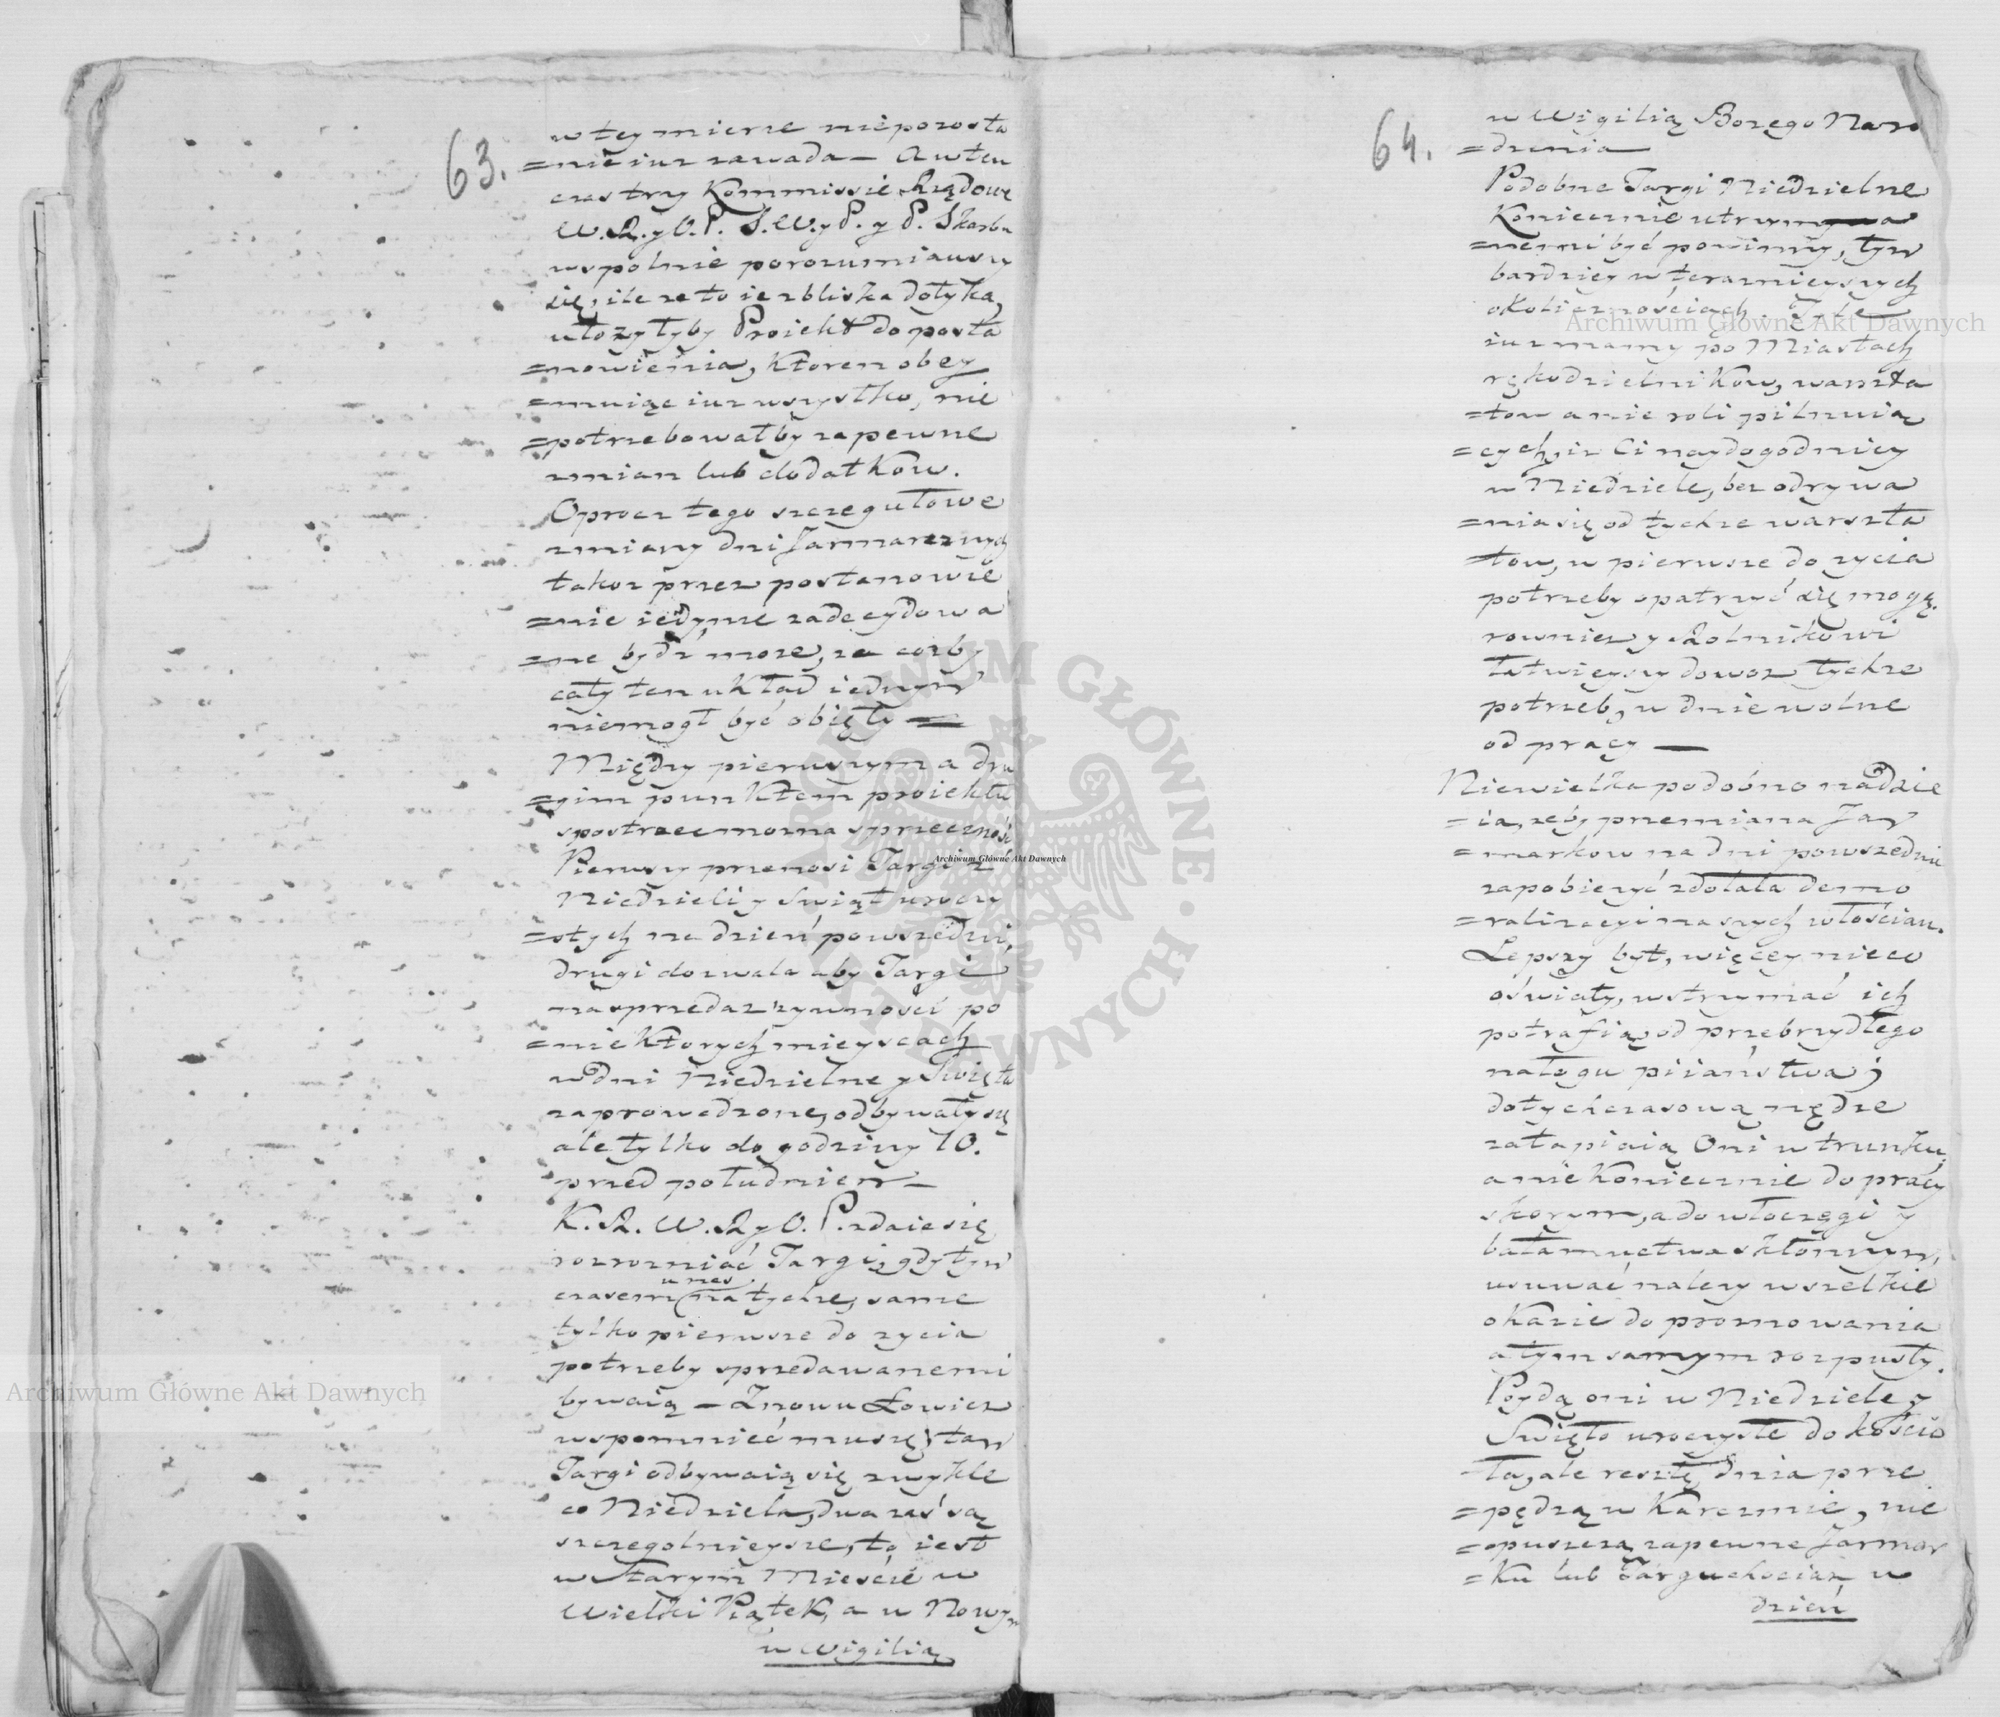 63.
w tey mierze niepozosta
=nie iuz zawada — A wten
czas trzy Kommissie Rządowe
W.R. y O.P. S.W. y P. y P. Skarbu
wspolnie porozumiawszy
się, ile ze to ie zbliska dotyka,
ułozyłyby Proiekt do posta
=nowienia, Ktoren obey
=muiąc iuz wszystko, nie
=potrzebowałby zapewne
zmian lub dodatkow.
Oprocz tego szczegułowe
zmiany dni Jarmarcznych
takoz przez postanowie
=nie iedynie zadecydowa
=ne bydź moze, za coźby
cały ten układ iednym
niemogł być obięty =
Między pierwszym a dru
=gim punktem proiektu
spostrzec mozna sprzeczność
Pierwszy przenosi Targi z
Niedzieli y Swiąt uroczy
=stych na dzień powszedni,
drugi dozwala aby Targi
na sprzedaz zywności po
=niektorych mieyscach
w dni Niedzielne y Swięta
zaprowadzone, odbywały się
ale tylko do godziny 10.
przed południem —
K. R. W. R y O. P. zdaie się
rozrozniać Targi, gdy tym
czasem na tychze, same
tylko pierwsze do zycia
potrzeby sprzedawanemi
bywaią — Znowu Łowicz
wspomnieć muszę, tam
Targi odbywaią się zwykle
co Niedziela, dwa zaś są
szczegolnieysze, to iest
w Starym Mieście w
Wielki Piątek, a w Nowym
w Wigilią
64.
w Wigilią Bozego Naro
=dzenia —
Podobne Targi Niedzielne
Koniecznie utrzyma
=nemi być powinny, tym
bardziey w teraznieyszych
okolicznościach. Tyle
iuz mamy po Miastach
rękodzielnikow, warszta
=tow a nie roli pilnuią
=cych, iz Ci naydogodniey
w Niedziele, bez odrywa
=nia się od tychze warszta
=tow, w pierwsze do zycia
potrzeby opatrzyć się mogą.
rowniez y Rolnikowi
łatwieyszy dowoz tychze
potrzeb, w dnie wolne
od pracy —
Niewielka podobno nadzie
=ia, zeby przemiana Jar
=markow na dni powszednie
zapobiezyć zdołała demo
=ralizacyi naszych włościan.
Lepszy byt, więcey nieco
oświaty, wstrzymać ich
potrafią od przebrzydłego
nałogu piiaństwa;
dotychczasową nędze
zatapiaią Oni w trunku,
a nie koniecznie do pracy
skorym, a do włoczęgi y
bałamuctwa skłonnym,
usuwać nalezy wszelkie
okazie do proznowania
a tym samym rozpusty.
Poydą oni w Niedziele y
Swięto uroczyste do kościo
ła, ale resztę dnia prze
=pędzą w Karczmie, nie
=opuszczą zapewne Jarmar
=ku lub Targu chociaz w
dzień
Archiwum Główne Akt Dawnych
Archiwum Główne Akt Dawnych
Archiwum Główne Akt Dawnych
ARCHIWUM GŁÓWNE · AKT DAWNYCH ·